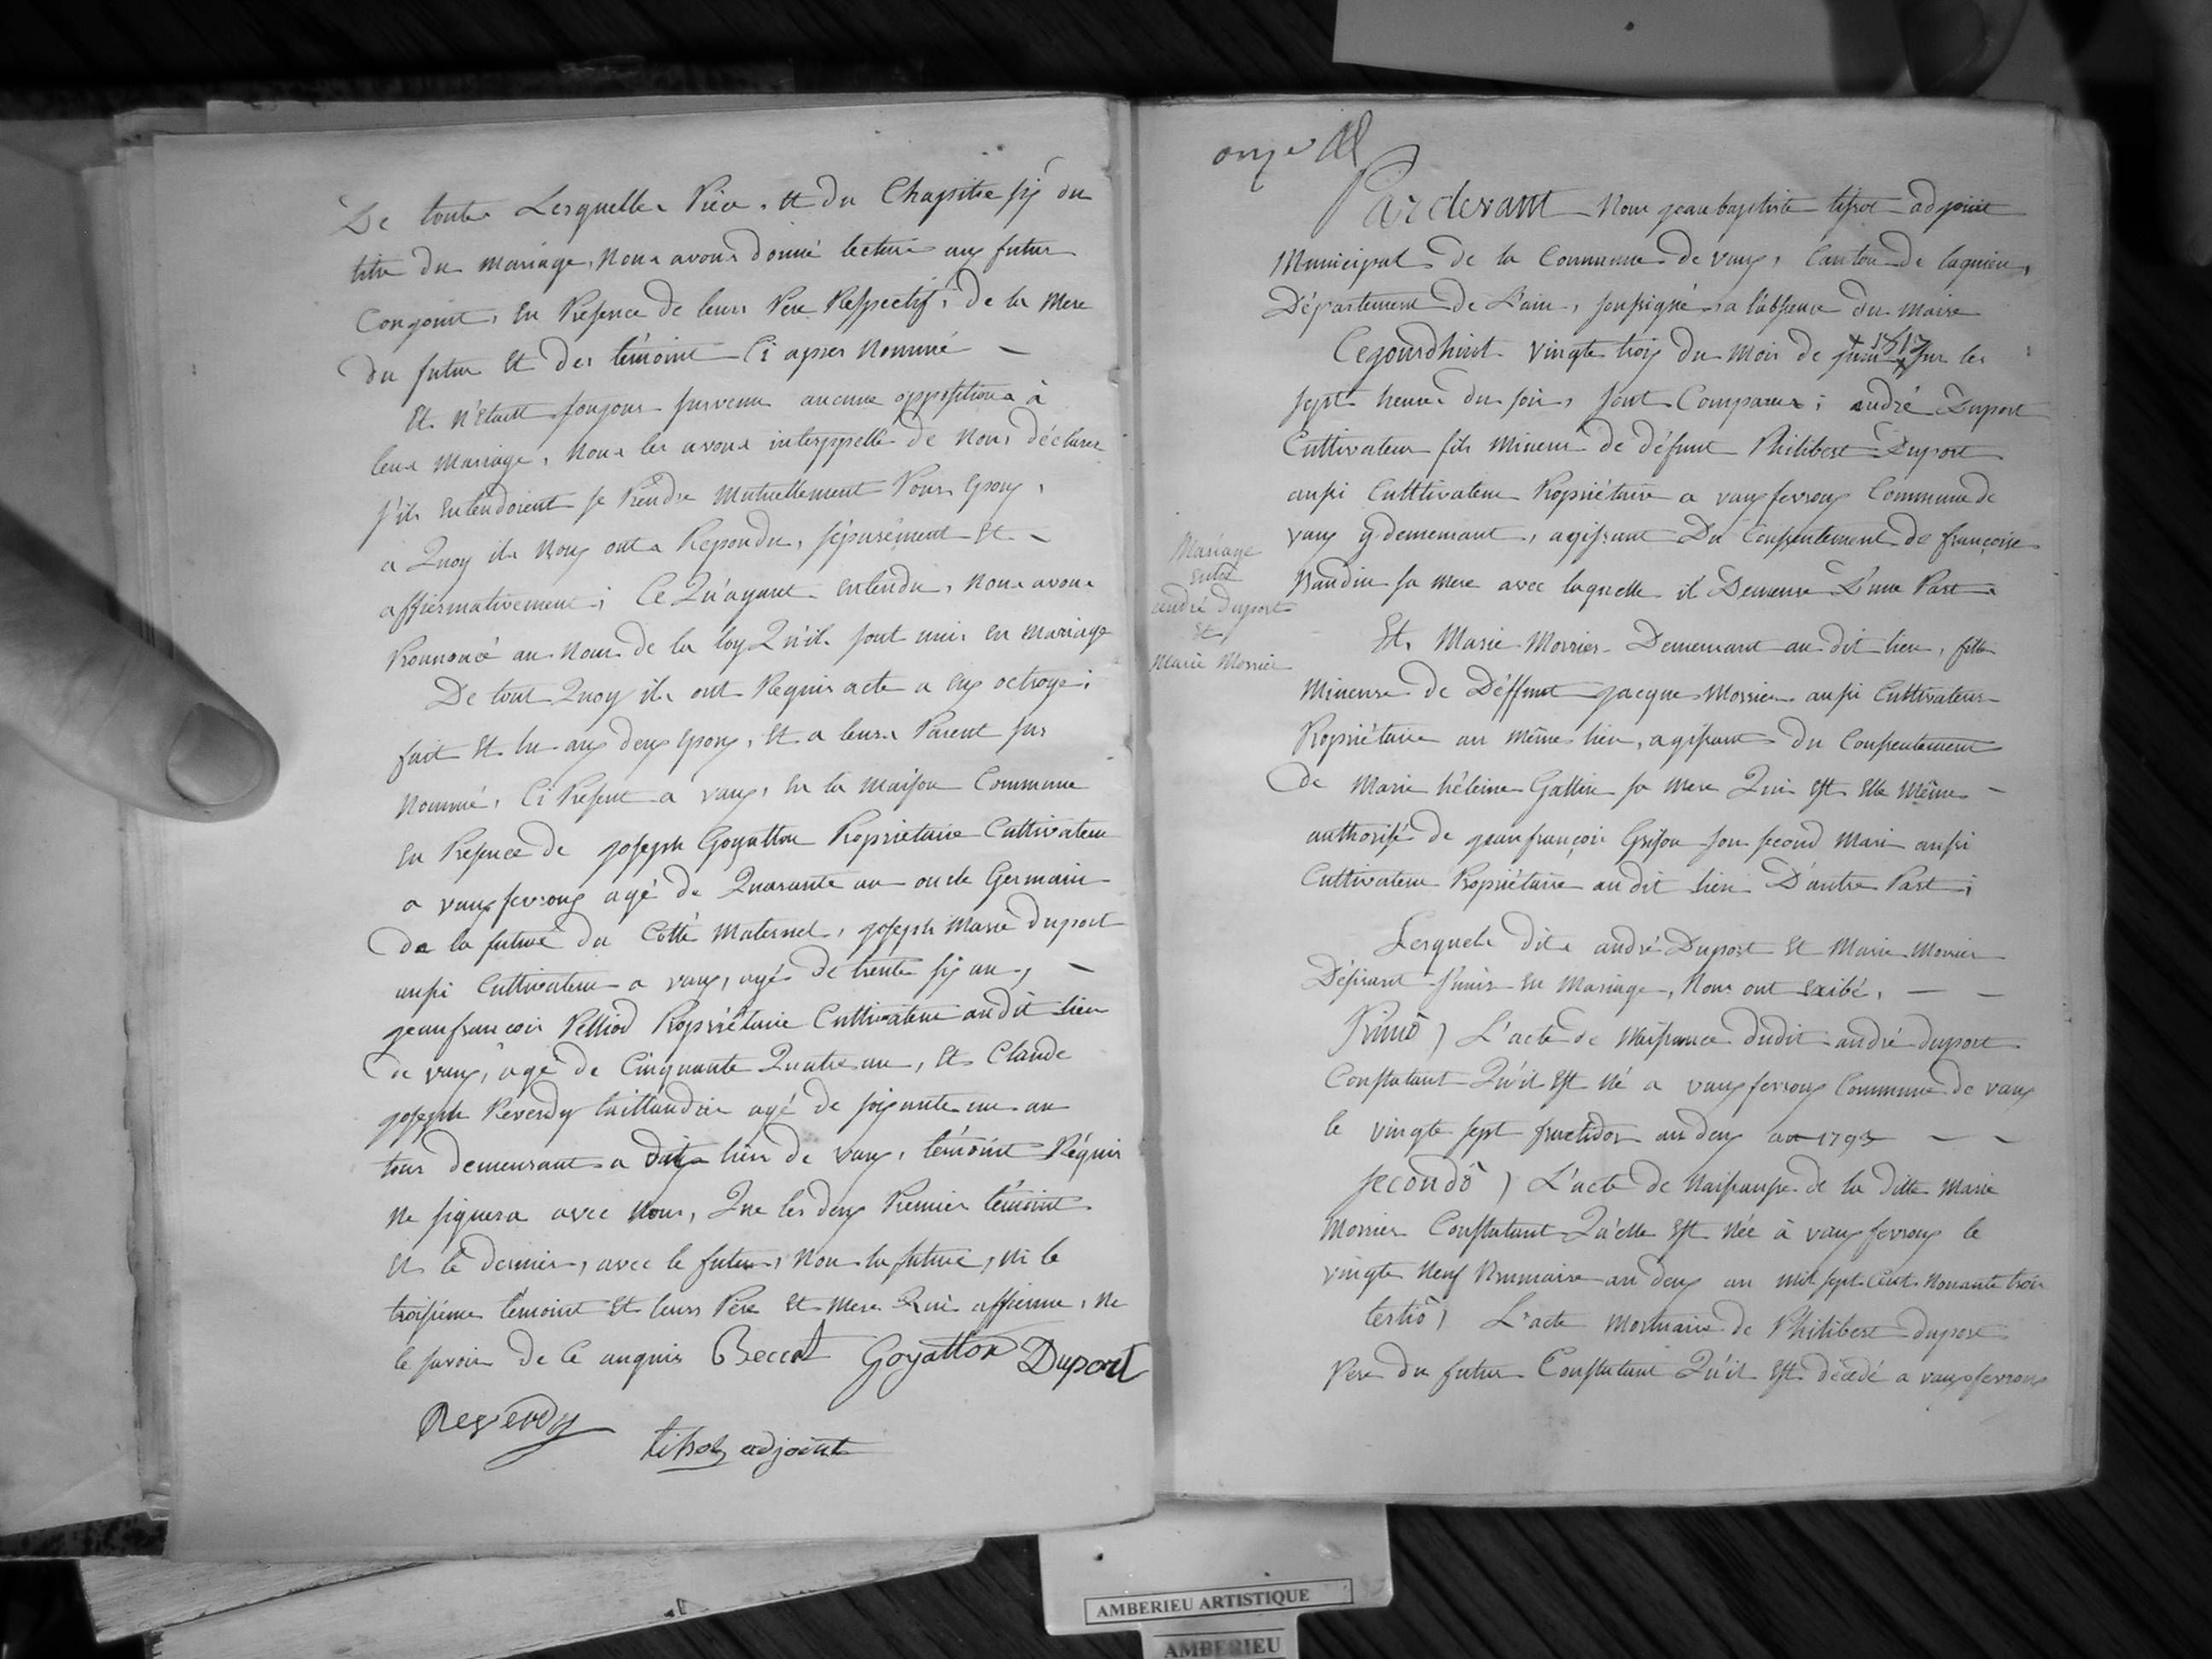 De toute Lesquelle Piece. et du Chapitre six du
titre du mariage, Nous avons donné lecture aux futur
Conjoint, En Présence de leurs Pere Respectif, de la Mere
du futur Et des témoint Ci apres Nommé —
Et N'Etant toujour survenu aucune oppositiona à
leur Mariage, Nous les avons interppellé de Nous déclarer
s'ils Entendoient se Prendre Mutuellement Pour Epoux,
a Quoy ils Nous onta Repondu, séparément Et —
affirmativement; Ce Qu'ayant entendu, Nous avons
Prononcé au Nom de la loy Qu'ils sont unis En Mariage
De tout Quoy ils ont Requis acte a eux octroyé;
fait Et lu aux deux Epoux, Et a leurs Parent sus
Nommé, Ci Présent a vaux, En la Maison Commune
En Présence de joseph Goyatton Propriétaire Cultivateur
a vauxfevroux agé de Quarante an oncle Germain
de la future du Cotté Maternel, joseph Marie duport
aussi Cultivateur a vaux, agé de trente six an, —
jeanfrançois Pelliod Propriétaire Cultivateur audit lieu
de vaux, agé de Cinquante Quatre an, Et Claude
joseph Reverdy taillandier agé de soixante un an
tous demeurant a dit lieu de vaux, témoint Réquis
Ne signera avec Nous, Que les deux Premier témoint
Et le dernier, avec le futur, Non la future, Ni le
troisième témoint Et leurs Père Et Mere Qui affirme, Ne
le savoir de Ce anquis Beccat Goyatton Duport
Reverdy
tissot adjoint
onze
Pardevant Nous jean baptiste tissot adjoint
Municipal de la Commune de vaux, Canton de lagnieu,
Département de L'ain, soussigné a l'absence du maire
Cejourdhuit vingte trois du Mois de juin 1813 sur les
sept heure du soir, sont Comparus; andré Duport
Cultivateur fils Mineur de défunt Philibert Duport
aussi Culttivateur Propriétaire a vauxfevroux Commune de
vaux y demeurant, agissant Du Consentement de françoise
Baudin sa Mere avec laquelle il Demeure D'une Part
Mariage
Entre
andré duport
Et
Marie Morrier
Et Marie Morrier Demeurant au dit lieu, fille
Mineure de Déffunt jacque Morrier aussi Cultivateur
Propriétaire au même lieu, agissant du Consentement
de Marie hélèine Gallin sa Mere Qui Est Elle Même —
authorisé de jeanfrançois Grison son second Mari aussi
Cultivateur Propriétaire au dit lieu D'autre Part;
Lesquels dits andré Duport Et Marie Morrier
Désirant s'unir En Mariage, Nous ont Exibé, — —
Primô) L'acte de Naissance dudit andré duport
Constatant Qu'il Est Né a vauxfevroux Commune de vaux
le vingte sept fructidor an deux an 1793 — —
secondô) L'acte de Naissanse de la ditte Marie
Morrier Constatant Qu'elle Est Née à vauxfevroux le
vingte Neuf Brumaire an deux an mil sept Cent Nonante trois
tertiô) L'acte Mortuaire de Philibert duport
Pere du futur Constatant Qu'il Est décédé a vauxfevroux
AMBERIEU ARTISTIQUE
AMBERIEU